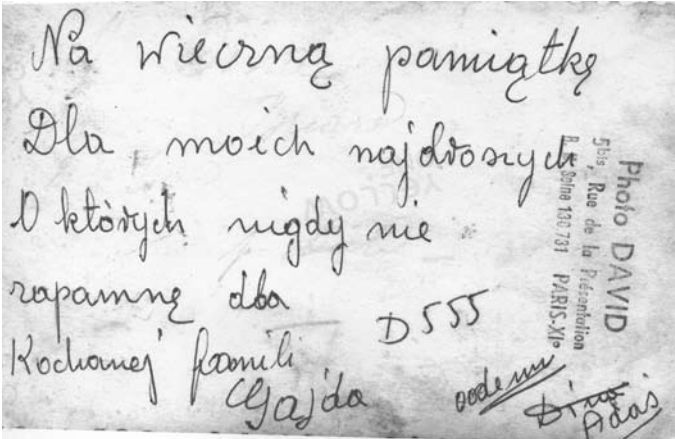 Na wieczną pamiątkę
Dla moich najdroszych
O których nigdy nie
zapamnę dla
Kochanej famili
Gajda
D555
Adaś
Photo DAVID
5bis, Rue de la Présentation
R. M. Seine 130 731 PARIS-XIe